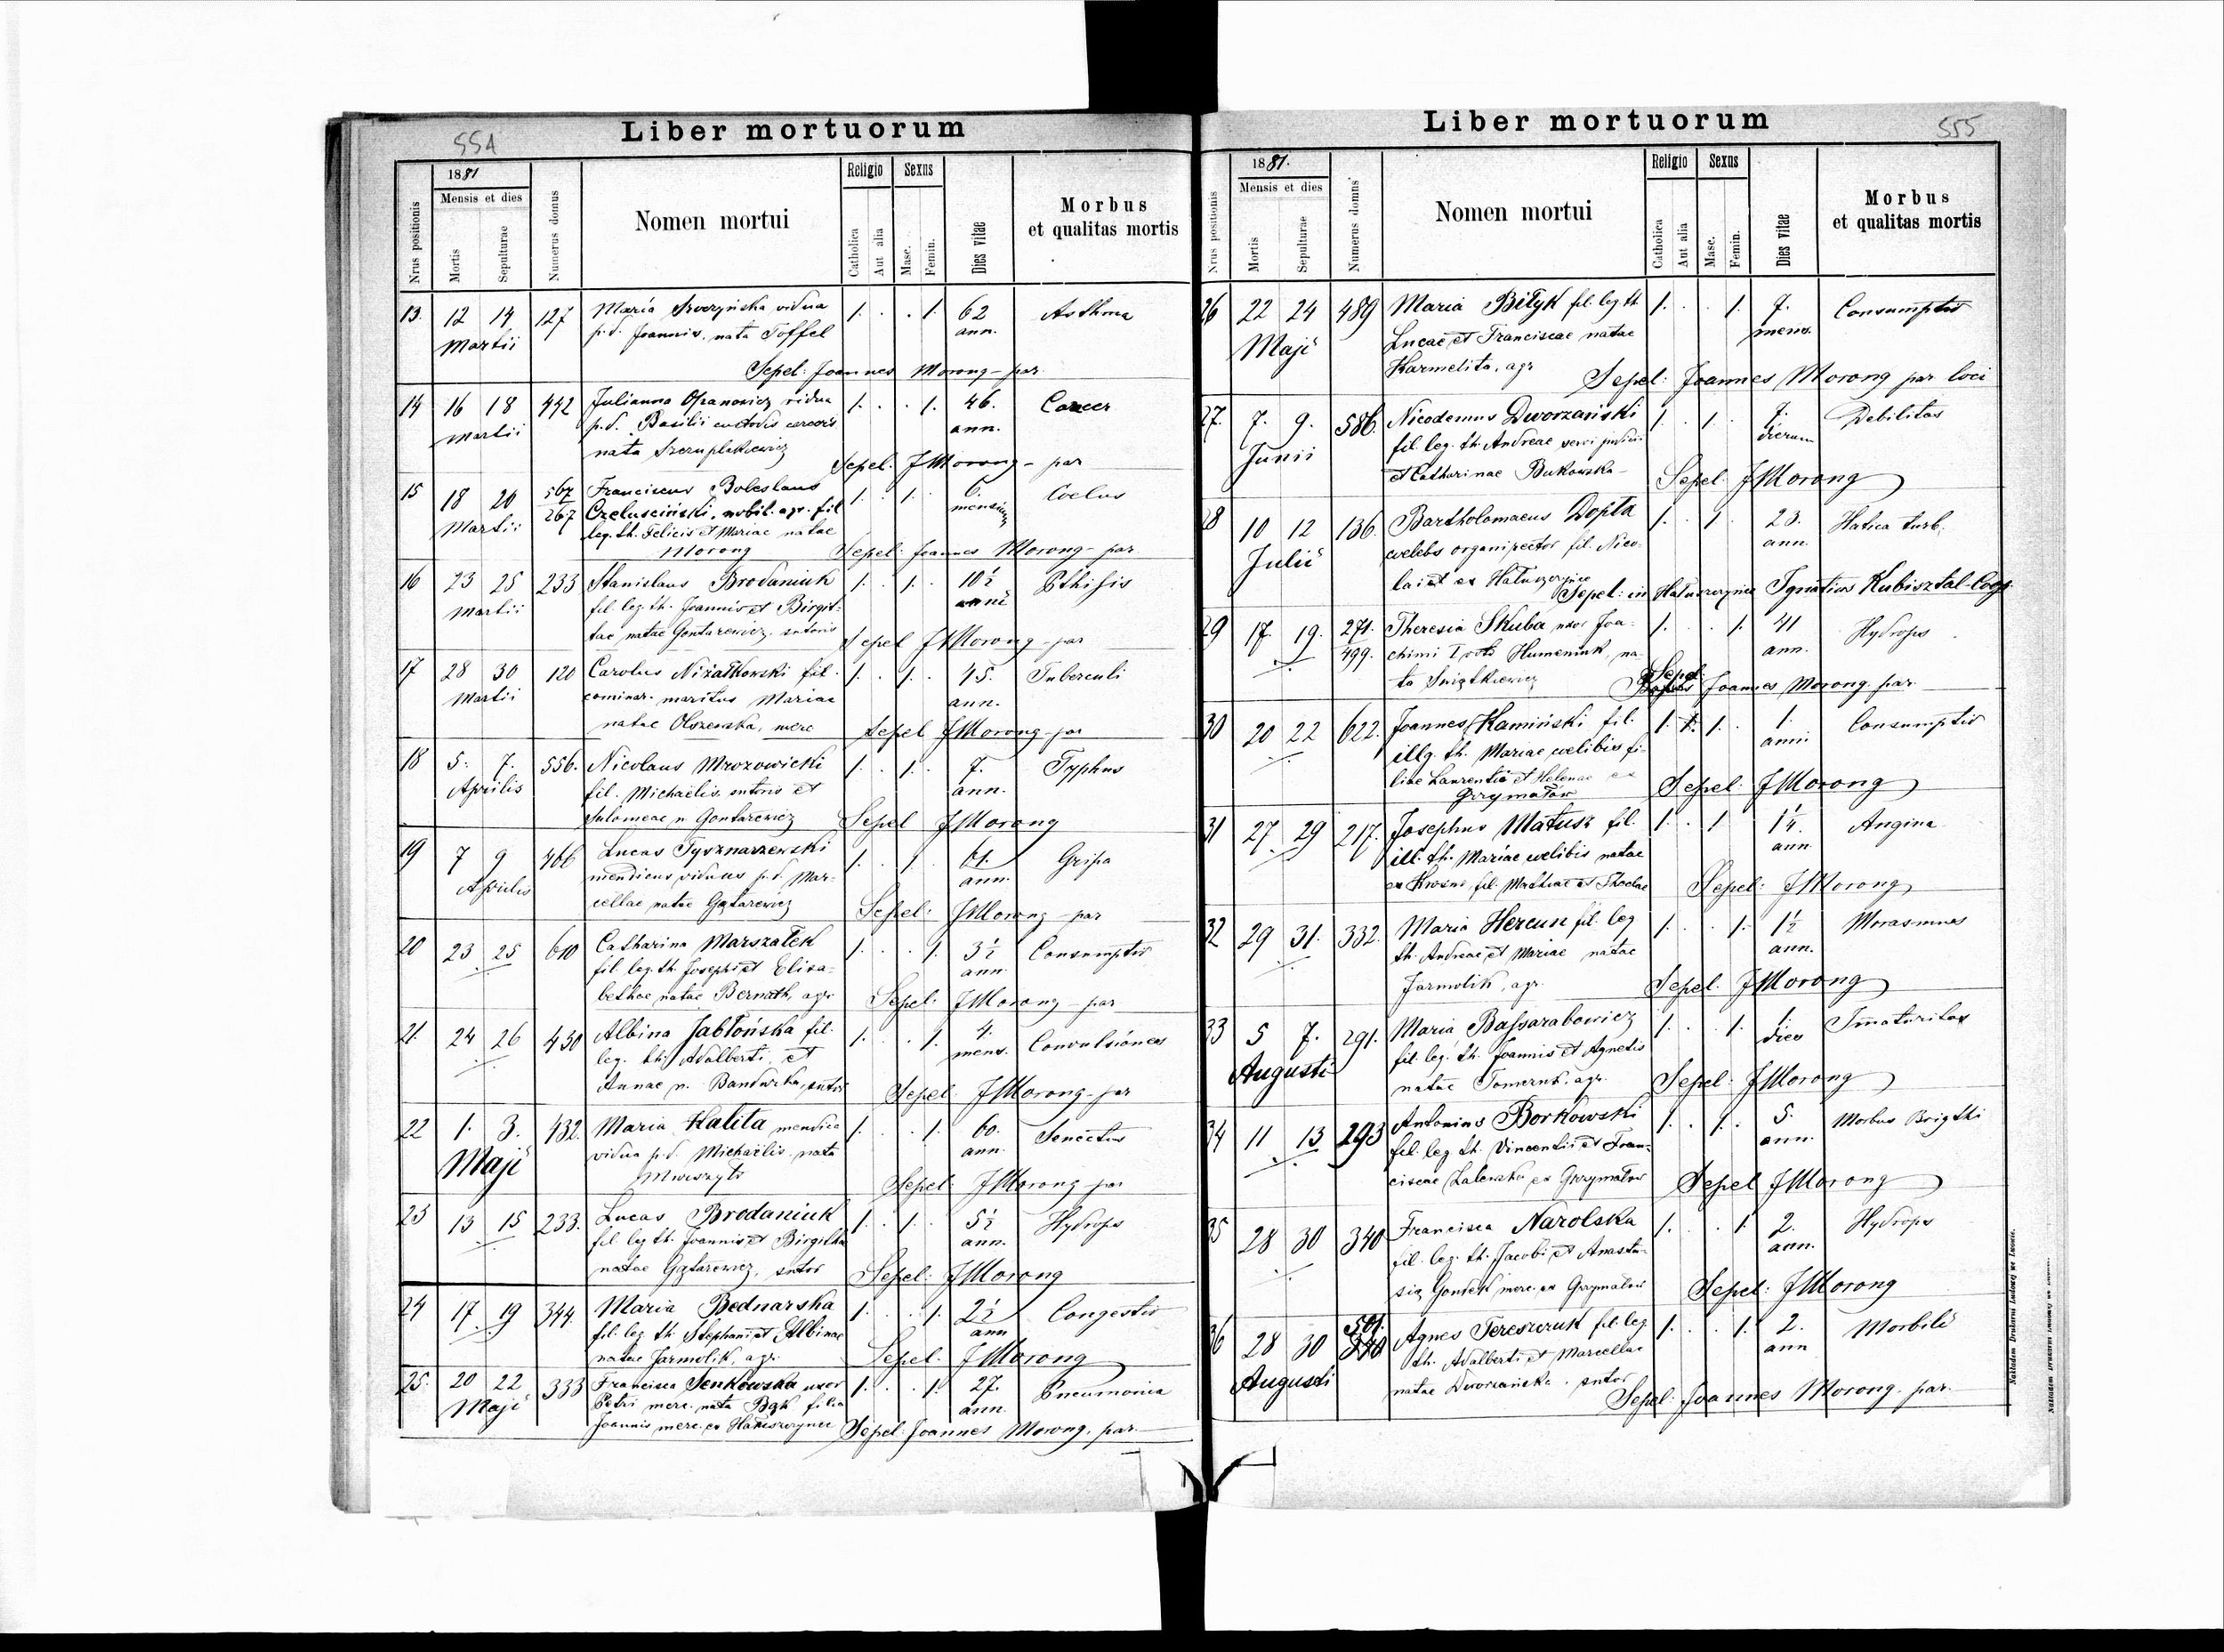 554
Liber mortuorum
Nrus positionis
1881
Mensis et dies
Mortis
Sepulturae
Numerus domus
Nomen mortui
Religio
Catholica
Aut alia
Sexus
Masc.
Femin.
Dies vitae
Morbus
et qualitas mortis
13. 12 14 127 Maria vidua 1. . . 1. 62 Asthma
Martii p.d. Joannis, nata Toffel ann.
Sepel: Joannes Morong - par
14 16 18 442 Julianna vidua 1. . . 1. 46. Cancer
Martii p.d. Basilii custodis ann.
nata
Sepel. J Morong - par
15 18 20 567 Franciscus Boleslaus 1. . 1. . 6. Coelus
Martii 267 Czeluściński, nobil. agr. fil mensium
leg. th. Felicis et Mariae natae
Morong Sepel: Joannes Morong - par
16 23 25 233 Stanislaus Brodaniuk 1. . 1. . 10½ Pthisis
Martii fil. leg. th. Joannis et Birgit- anni
tae natae Gontarewicz, sutoris
Sepel J Morong - par
17 28 30 120 Carolus Niżałkowski fil. 1. . 1. . 45. Tuberculi
Martii maritus Mariae ann.
natae Olszewska, merc Sepel J Morong - par
18 5. 7. 556. Nicolaus Mrozowicki 1. . 1. . 7. Typhus
Aprilis fil. Michaelis sutoris et ann.
Salomeae n. Gontarewicz Sepel J Morong
19 7 9 466 Lucas 1. . 1. . 61. Gripa
Aprilis mendicus viduus p.d. Mar- ann.
cellae natae Gątarewicz Sepel: J Morong - par
20 23 25 610 Catharina Marszałek 1. . . 1. 3½ Consumptio
fil. leg. th. Josephi et Elisa- ann.
bethae natae Bernath, agr. Sepel. J Morong - par
21. 24 26 430 Albina Jabłońska fil. 1. . . 1. 4. Convulsiones
leg. th. Adalberti et mens.
Annae n. Bandurka, sutor Sepel J Morong - par
22 1. 3. 432. Maria Kalita mendica 1. . . 1. 60. Senectus
Maji vidua p.d. Michaelis nata ann.
Sepel: J Morong - par
23 13 15 233. Lucas Brodaniuk 1. . 1. . 5½ Hydrops
fil. leg th. Joannis et Birgittae ann.
natae Gątarewicz, sutor Sepel: J Morong
24 17 19 344. Maria Bednarska 1. . . 1. 2½ Congestio
fil. leg. th. Stephani et Albinae ann
natae Jarmolik, agr. Sepel: J Morong
25. 20 22 333 Francisca Senkowska uxor 1. . . 1. 27. Pneumonia
Maji Petri merc. nata Bąk filia ann.
Joannis merc. ex Hałuszczyńce Sepel: Joannes Morong. par.
555
Liber mortuorum
Nrus positionis
1881.
Mensis et dies
Mortis
Sepulturae
Numerus domus
Nomen mortui
Religio
Catholica
Aut alia
Sexus
Masc.
Femin.
Dies vitae
Morbus
et qualitas mortis
26 22 24 489 Maria Bityk fil. leg th 1. . . 1. 7. Consumptio
Maji Lucae et Franciscae natae mens.
Karmelita, agr Sepel: Joannes Morong par loci
27. 7. 9. 586. Nicodemus Dworzański 1. . 1. . 7. Debilitas
Junii fil. leg. th. Andreae servi dierum
et Catharinae Bukowska Sepel. J Morong
28 10 12 136. Bartholomaeus Dopta 1. . 1. . 23.
Julii celebs fil. Nico- ann.
lai et ex Hałuszczyńce
Sepel: in Hałuszczyńce Ignatius Kubisztal-Coop.
29 17. 19. 271. Theresia Skuba uxor Joa- 1. . . 1. 41 Hydrops
499. chimi I voto Humeniuk, na- ann.
ta Świątkiewicz Sepel Joannes Morong. par.
30 20 22 622. Joannes Kamiński fil. 1. 1. 1. . 1. Consumptio
illg. th. Mariae celibis fi- anni
liae Laurentii et Helenae ex
Grzymałów Sepel: J Morong
31 27 29 217. Josephus Matusz fil. 1. . 1 1¼. Angina
ill. th. Mariae celibis natae ann
fil. Mathiae et Sepel: J Morong
32 29 31. 332. Maria Hercun fil. leg 1. . . 1. 1½ Marasmus
th. Andreae et Mariae natae ann.
Jarmolik, agr. Sepel. J Morong
33 5 7. 291. Maria Bassarabowicz 1. . . 1. 1. Imaturitas
Augusti fil. leg. th. Joannis et Agnetis dies
natae agr. Sepel: J Morong
34 11 13 293 Antonius Borkowski 1. . 1. . 5. Morbus Brigthi
fil. leg th. Vincentii et Fran- ann.
ciscae Zalewska ex Grzymałów Sepel J Morong
35 28 30 340 Francisca Narolska 1. . . 1. 2. Hydrops
fil. leg. th. Jacobi et Anasta- ann.
merc. ex Grzymałów Sepel: J Morong
36 28 30 501. Agnes Tereszczuk fil. leg 1. . . 1. 2. Morbili
340
Augusti th. Adalberti et Marcellae ann
natae Dworzańska. sutor
Sepel: Joannes Morong. par.
Nakładem Drukarni Ludowej we Lwowie.